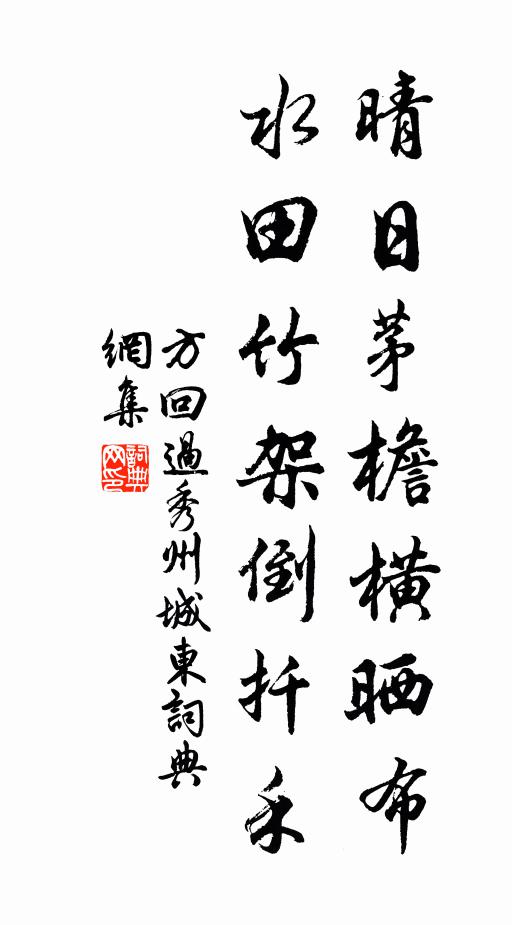 晴日茅檐橫晒布
水田竹架倒扦禾
方回過秀州城東詞典
網集
詞典網印